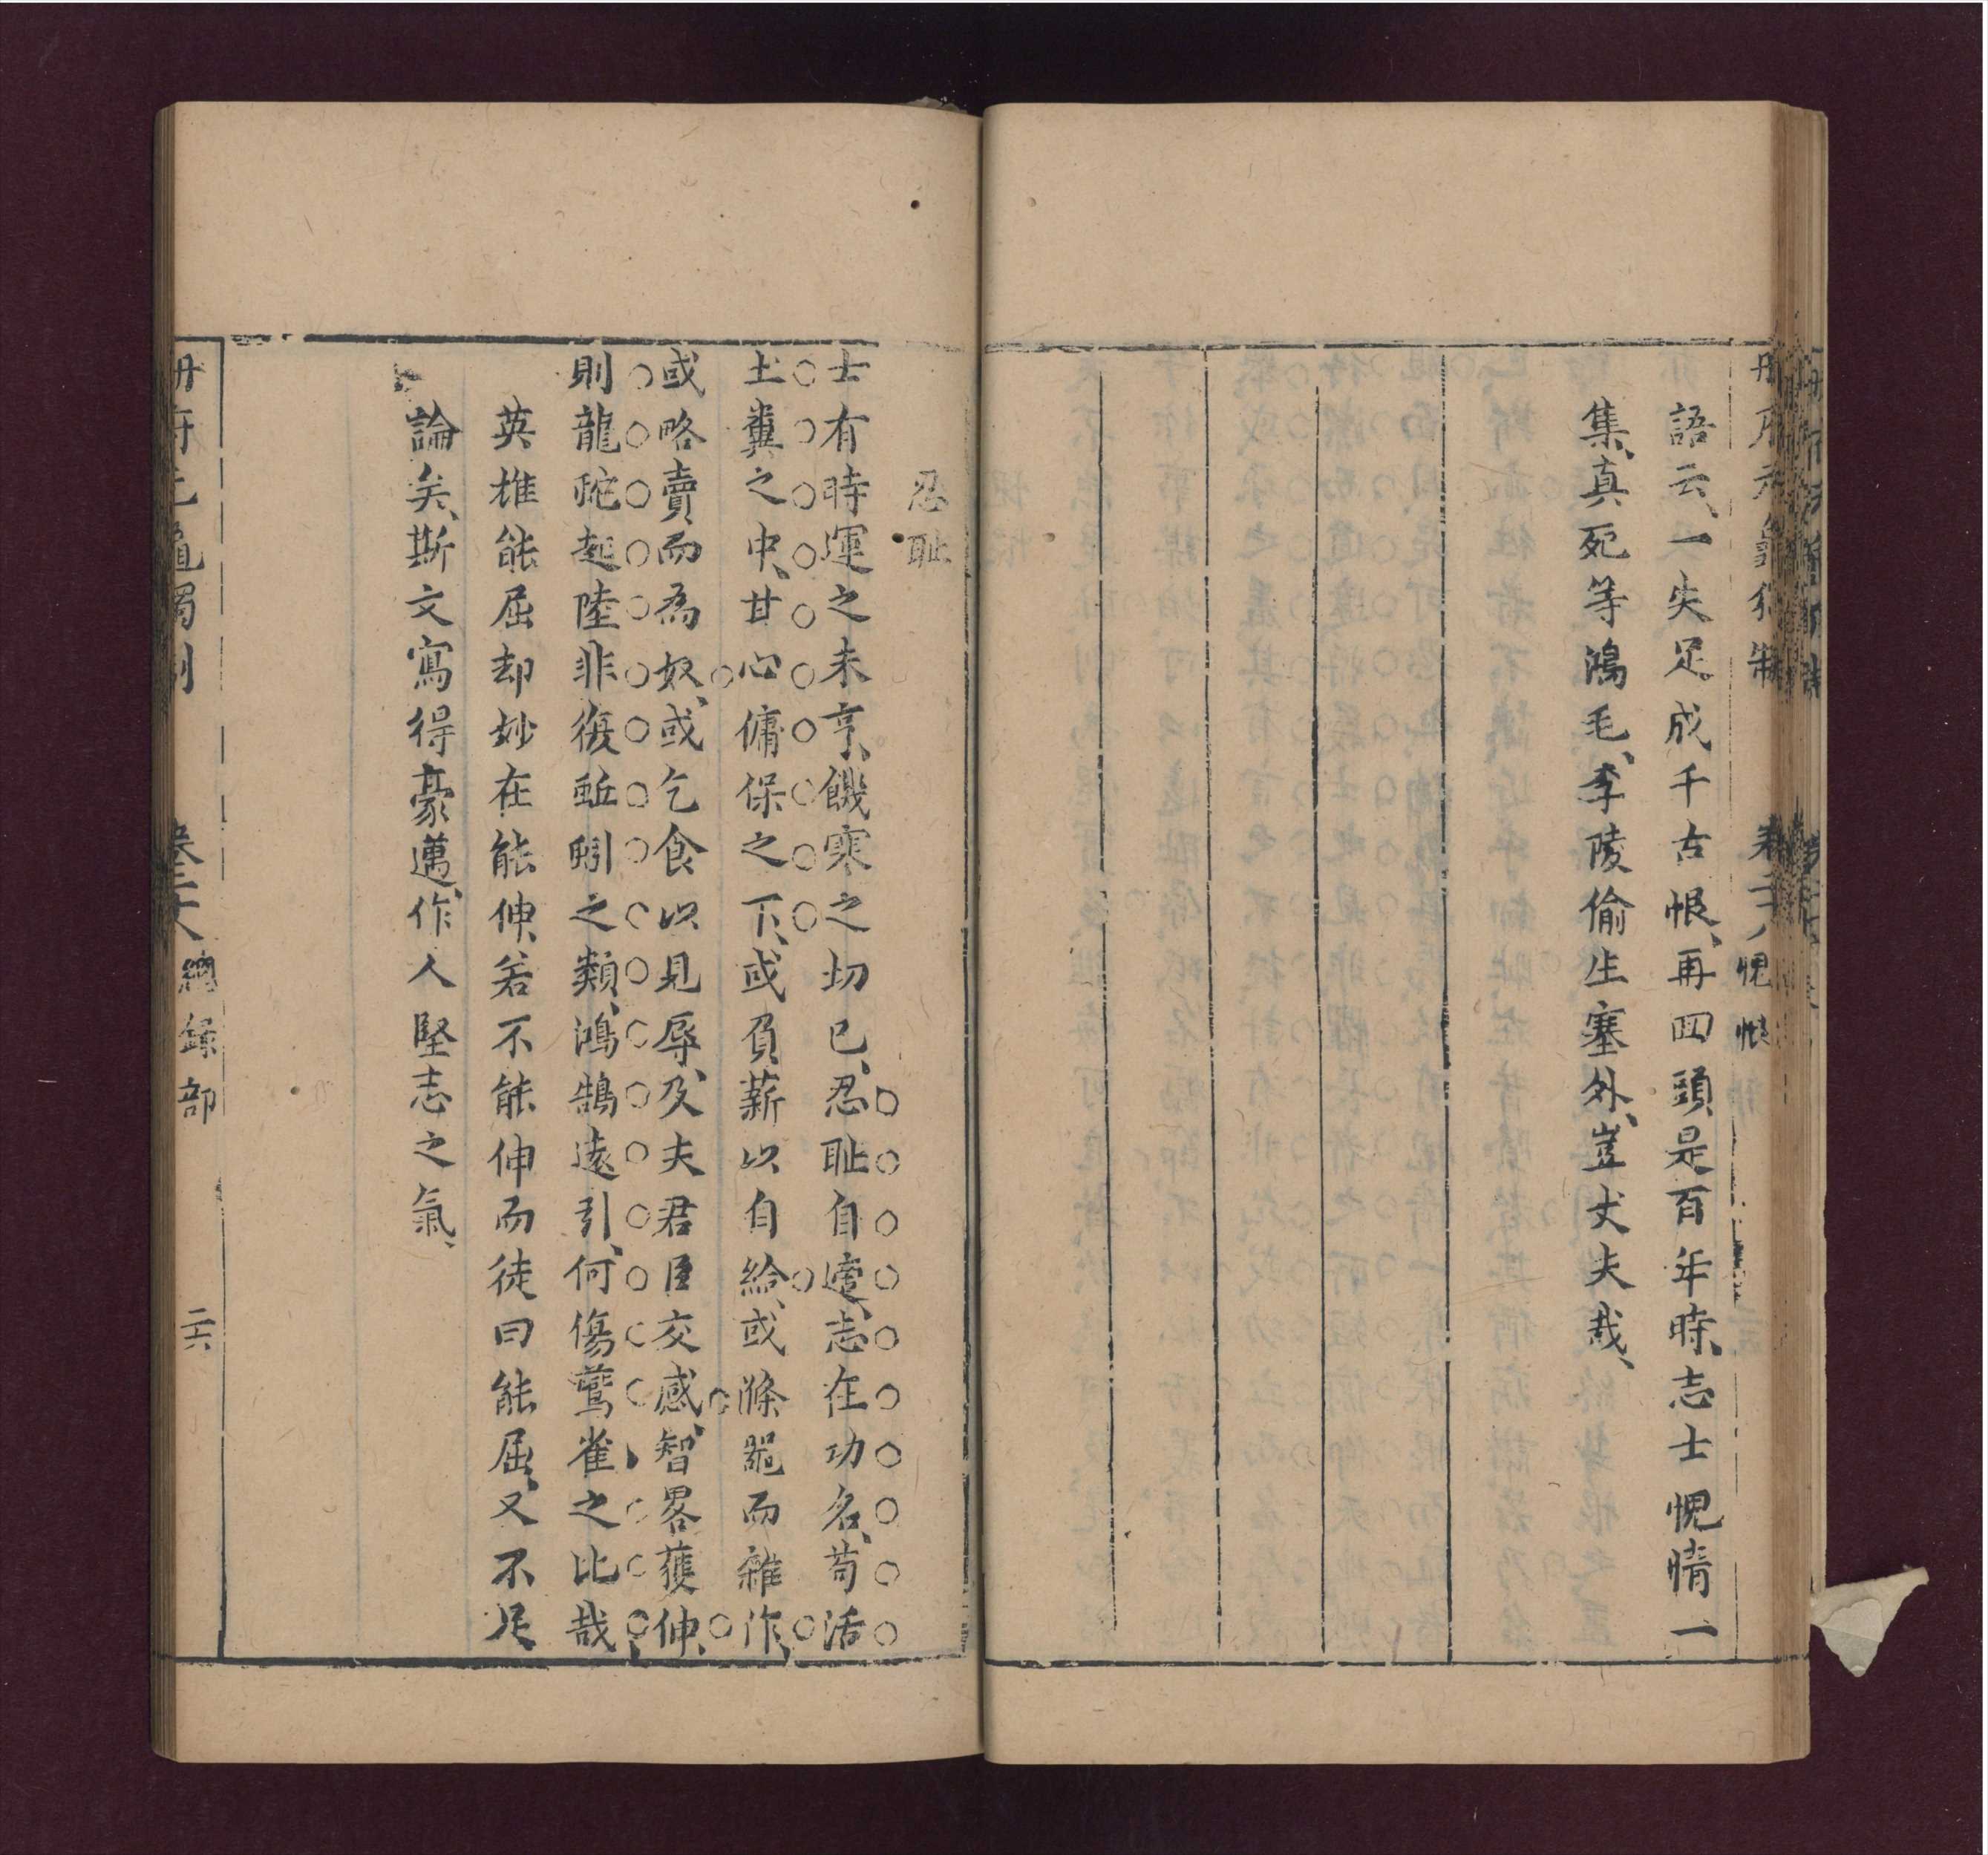 語云、一失足成千古恨、再回頭是百年時、志士愧情一
集、真死等鴻毛、李陵偷生塞外、豈丈夫哉、
忍耻
士有時運之未亨、饑寒之切已、忍耻自遣、志在功名、苟活
土糞之中、甘心傭保之下、或負薪以自給、或滌器而雜作、
或略賣而為奴、或乞食以見辱、及夫君臣交感、智畧獲伸、
則龍跎起陸、非復蚯蚓之類、鴻鵠遠引、何傷鷰雀之比哉、
英雄能屈却妙在能伸、若不能伸而徒曰能屈、又不足
論矣、斯文寫得豪邁、作人堅志之氣、
總録部
二六